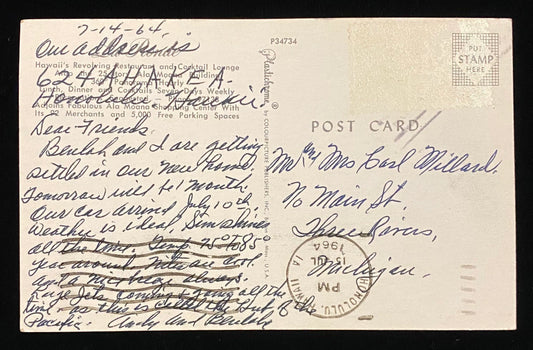 7-14-64,
Our address is
Hawaii's Revolving Restaurant and Cocktail Lounge
Ala Moana Building
6244 HAKEA-
Lunch, Dinner and Cocktails Seven Days Weekly
Honolulu - Hawaii
Adjoins Fabulous Ala Moana Shopping Center With
Its 92 Merchants and 5,000 Free Parking Spaces
Dear Friends.
Beulah and I are getting
settled in our new home.
Tomorrow will be 1 month.
Our car arrived July 10th.
Weather is ideal, Sun shines
all the time. Temp. 75 to 85
year around. Nites are cool
and a nice breeze always.
Huge Jets coming & going all the
time - as this is called the Hub of the
Pacific. Andy and Beulah
P34734
Plastichrome ®
PUT
STAMP
HERE
POST CARD
Mr. and Mrs Carl Millard.
No Main St.
Three Rivers,
Michigan.
HONOLULU, HAWAII
PM
15 JUL
1964